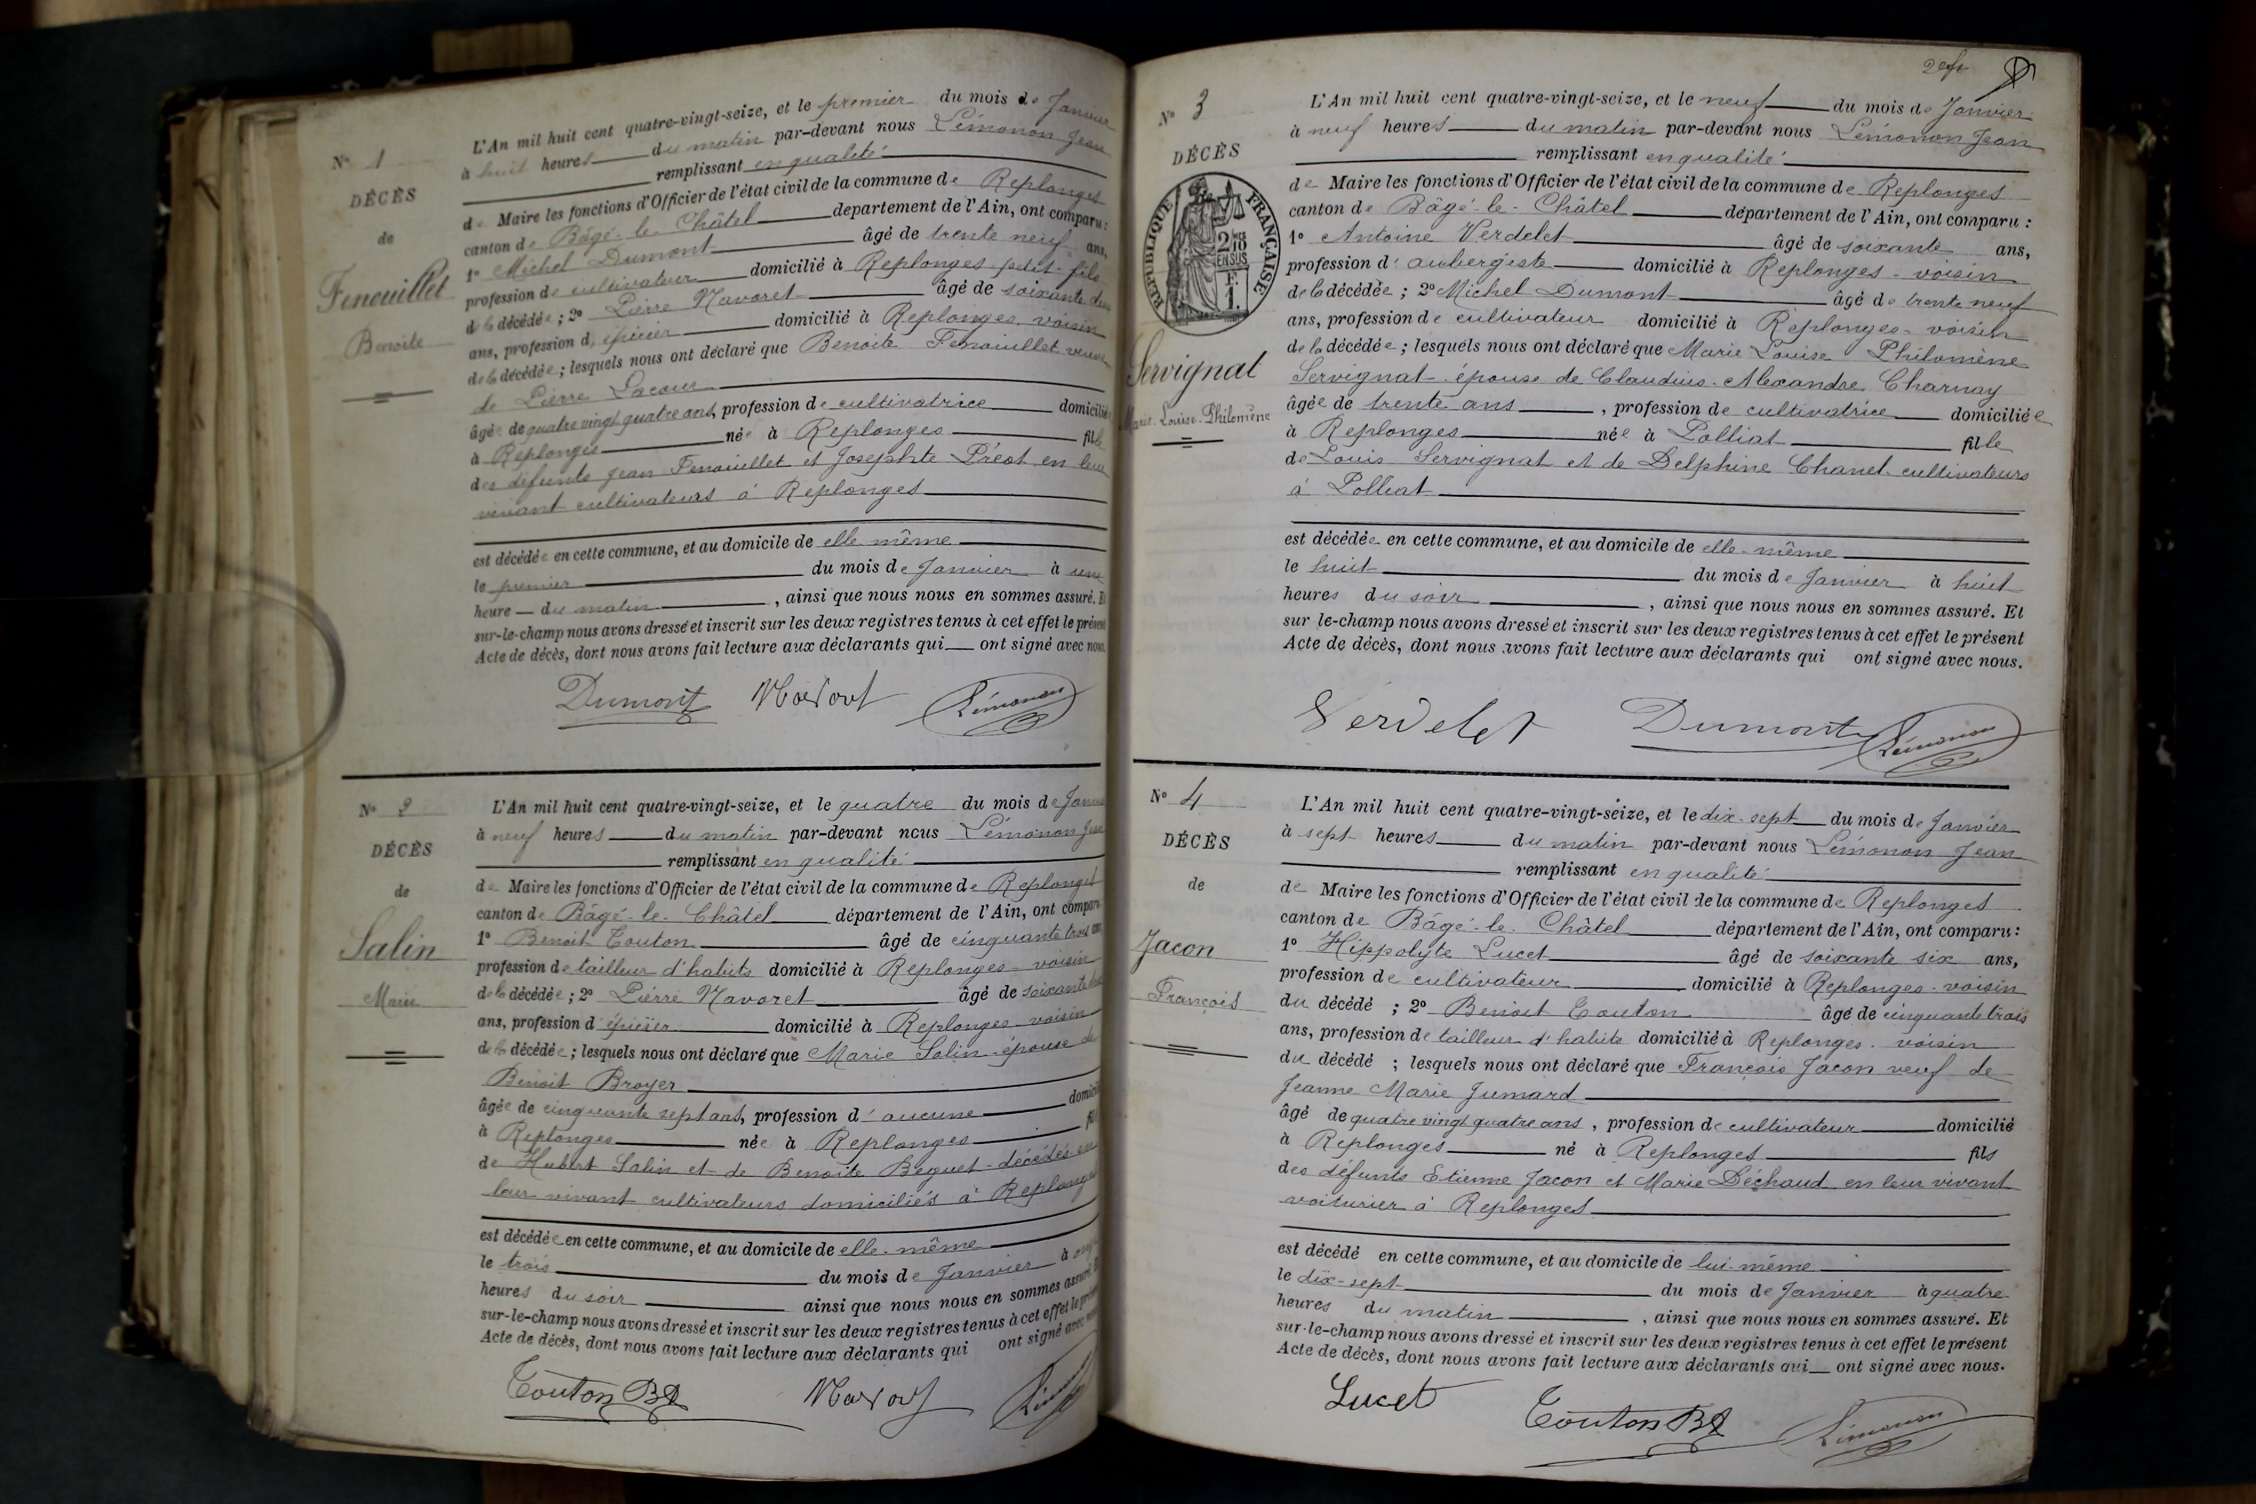 N° 1
DÉCÈS
de
Fenouillet
Benoite
L'An mil huit cent quatre-vingt-seize, et le premier du mois de Janvier
à huit heures du matin par-devant nous Lémonon Jean
remplissant en qualité
de Maire les fonctions d'Officier de l'état civil de la commune de Replonges
canton de Bâgé-le-Châtel département de l'Ain, ont comparu:
1° Michel Dumont âgé de trente neuf ans,
profession de cultivateur domicilié à Replonges petit-fils
de la décédée; 2° Pierre Navoret âgé de soixante
ans, profession d'épicier domicilié à Replonges voisin
de la décédée; lesquels nous ont déclaré que Benoite Fenouillet veuve
de Pierre Lacour
âgée de quatre vingt quatre ans, profession de cultivatrice domiciliée
à Replonges née à Replonges fille
des défunts Jean Fenouillet et Josephte Préot en leur
vivant cultivateurs à Replonges
est décédée en cette commune, et au domicile de elle même
le premier du mois de Janvier à une
heure du matin, ainsi que nous nous en sommes assuré. Et
sur-le-champ nous avons dressé et inscrit sur les deux registres tenus à cet effet le présent
Acte de décès, dont nous avons fait lecture aux déclarants qui ont signé avec nous.
Dumont Navoret Lémonon
N° 2
DÉCÈS
de
Salin
Marie
L'An mil huit cent quatre-vingt-seize, et le quatre du mois de Janvier
à neuf heures du matin par-devant nous Lémonon Jean
remplissant en qualité
de Maire les fonctions d'Officier de l'état civil de la commune de Replonges
canton de Bâgé-le-Châtel département de l'Ain, ont comparu
1° Benoit Touton âgé de cinquante trois ans
profession de tailleur d'habits domicilié à Replonges - voisin
de la décédée; 2° Pierre Navoret âgé de soixante
ans, profession d'épicier domicilié à Replonges - voisin
de la décédée; lesquels nous ont déclaré que Marie Salin épouse de
Benoit Broyer
âgée de cinquante sept ans, profession d'aucune domiciliée
à Replonges née à Replonges fille
de Hubert Salin et de Benoite Beguet - décédés en
leur vivant cultivateurs domiciliés à Replonges
est décédée en cette commune, et au domicile de elle-même
le trois du mois de Janvier à onze
heures du soir ainsi que nous nous en sommes assuré. Et
sur-le-champ nous avons dressé et inscrit sur les deux registres tenus à cet effet le présent
Acte de décès, dont nous avons fait lecture aux déclarants qui ont signé avec nous
Touton Bt Navoret Lémonon
N° 3
DÉCÈS
RÉPUBLIQUE FRANÇAISE
2/10 EN SUS
F. 1.
Servignat
Marie-Louise-Philomène
L'An mil huit cent quatre-vingt-seize, et le neuf du mois de Janvier
à neuf heures du matin par-devant nous Lémonon Jean
remplissant en qualité
de Maire les fonctions d'Officier de l'état civil de la commune de Replonges
canton de Bâgé-le-Châtel département de l'Ain, ont comparu:
1° Antoine Verdelet âgé de soixante ans,
profession d'aubergiste domicilié à Replonges - voisin
de la décédée; 2° Michel Dumont âgé de trente neuf
ans, profession de cultivateur domicilié à Replonges - voisin
de la décédée; lesquels nous ont déclaré que Marie Louise Philomène
Servignat - épouse de Claudius-Alexandre Charnay
âgée de trente ans, profession de cultivatrice domiciliée
à Replonges née à Polliat fille
de Louis Servignat et de Delphine Chanel cultivateurs
à Polliat
est décédée en cette commune, et au domicile de elle-même
le huit du mois de Janvier à huit
heures du soir, ainsi que nous nous en sommes assuré. Et
sur le-champ nous avons dressé et inscrit sur les deux registres tenus à cet effet le présent
Acte de décès, dont nous avons fait lecture aux déclarants qui ont signé avec nous.
Verdelet Dumont Lémonon
N° 4
DÉCÈS
de
Jacon
François
L'An mil huit cent quatre-vingt-seize, et le dix-sept du mois de Janvier
à sept heures du matin par-devant nous Lémonon Jean
remplissant en qualité
de Maire les fonctions d'Officier de l'état civil de la commune de Replonges
canton de Bâgé-le-Châtel département de l'Ain, ont comparu:
1° Hippolyte Lucet âgé de soixante six ans,
profession de cultivateur domicilié à Replonges - voisin
du décédé; 2° Benoit Touton âgé de cinquante trois
ans, profession de tailleur d'habits domicilié à Replonges - voisin
du décédé; lesquels nous ont déclaré que François Jacon veuf de
Jeanne Marie Jumard
âgé de quatre vingt quatre ans, profession de cultivateur domicilié
à Replonges né à Replonges fils
des défunts Etienne Jacon et Marie Déchaud en leur vivant
voiturier à Replonges
est décédé en cette commune, et au domicile de lui-même
le dix-sept du mois de Janvier à quatre
heures du matin, ainsi que nous nous en sommes assuré. Et
sur-le-champ nous avons dressé et inscrit sur les deux registres tenus à cet effet le présent
Acte de décès, dont nous avons fait lecture aux déclarants qui ont signé avec nous.
Lucet Touton Bt Lémonon